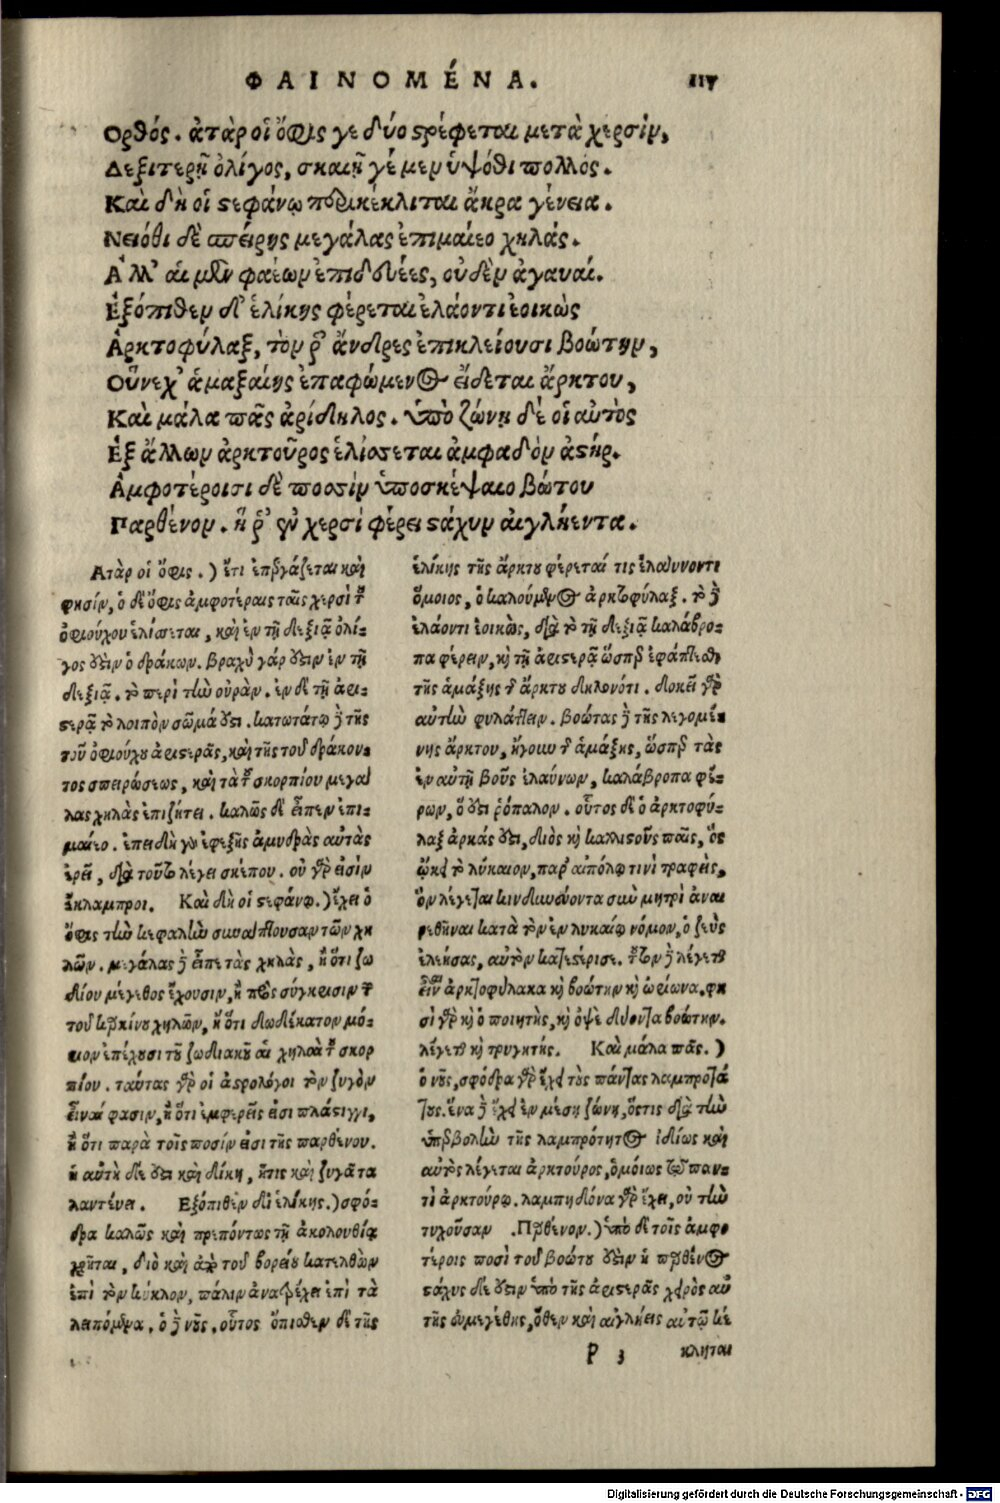 ΦΑΙΝΟΜΈΝΑ. 117
Ορθός. ἀτὰρ οἱ ὄφις γε δύο στρέφεται μετὰ χερσὶν,
Δεξιτερῇ ὀλίγος, σκαιῇ γέ μεν ὑψόθι πολλός.
Καὶ δὴ οἱ στεφάνῳ παρακέκλιται ἄκρα γένεια.
Νειόθι δὲ σπείρης μεγάλας ἐπιμαίεο χηλάς.
Ἀλλ' αἱ μὲν φαέων ἐπιδευέες, οὐδὲν ἀγαυαί.
Ἐξόπιθεν δ' ἑλίκης φέρεται ἐλάοντι ἐοικὼς
Ἀρκτοφύλαξ, τὸν ῥ' ἄνδρες ἐπικλείουσι βοώτην,
Οὕνεχ' ἁμαξαίης ἐπαφώμενος εἴδεται ἄρκτου,
Καὶ μάλα πᾶς ἀρίδηλος. ὑπὸ ζώνῃ δέ οἱ αὐτὸς
Ἐξ ἄλλων ἀρκτοῦρος ἑλίσσεται ἀμφαδὸν ἀστήρ.
Ἀμφοτέροισι δὲ ποσσὶν ὑποσκέψαιο βώτου
Παρθένον. ἥ ῥ' ἐν χερσὶ φέρει στάχυν αἰγλήεντα.
Ατὰρ οἱ ὄφις.) ἔτι ἐπεργάζεται καὶ
φησὶν, ὁ δὲ ὄφις ἀμφοτέραις ταῖς χερσὶ τοῦ
ὀφιούχου ἑλίσσεται, καὶ ἐν τῇ δεξιᾷ ὀλί-
γος ἐστὶν ὁ δράκων. βραχὺ γάρ ἐστιν ἐν τῇ
δεξιᾷ. τὸ περὶ τὴν οὐρὰν. ἐν δὲ τῇ ἀρι-
στερᾷ τὸ λοιπὸν σῶμά ἐστι. κατωτάτω δὲ τῆς
τοῦ ὀφιούχου ἀριστερᾶς, καὶ τῆς τοῦ δράκον-
τος σπειράσεως, καὶ τὰς τοῦ σκορπίου μεγά
λας χηλὰς ἐπιζήτει. καλῶς δὲ εἶπεν ἐπι-
μαίεο. ἐπειδὴ γὰρ ἐφεξῆς ἀμυδρὰς αὐτὰς
ἐρεῖ, διὰ τοῦτο λέγει σκέπου. οὐ γὰρ εἰσὶν
ἔκλαμπροι. Καὶ δὴ οἱ στεφάνῳ.) ἔχει ὁ
ὄφις τὴν κεφαλὴν συνάπτουσαν τῶν χη
λῶν. μεγάλας δὲ εἶπε τὰς χηλὰς, ἢ ὅτι ζω
δίου μέγεθος ἔχουσιν, ἢ πρὸς σύγκρισιν τῶν
τοῦ καρκίνου χηλῶν, ἢ ὅτι δωδέκατον μό-
ριον ἐπέχουσι τοῦ ζωδιακοῦ αἱ χηλαὶ τοῦ σκορ
πίου. ταύτας γὰρ οἱ ἀστρολόγοι τὸν ζυγὸν
εἶναί φασιν, ἢ ὅτι ἐμφερεῖς εἰσι πλάστιγγι,
ἢ ὅτι παρὰ τοῖς ποσίν εἰσι τῆς παρθένου.
ἡ αὐτὴ δέ ἐστι καὶ δίκη, ἥτις καὶ ζυγὰ τα
λαντεύει. Ἐξόπιθεν δ' ἑλίκης.) σφό-
δρα καλῶς καὶ πρεπόντως τῇ ἀκολουθίᾳ
χρῆται, διὸ καὶ ἀπὸ τοῦ βορείου κατελθὼν
ἐπὶ τὸν κύκλον, πάλιν ἀνατρέχει ἐπὶ τὰ
λειπόμενα. ὁ δὲ νοῦς, οὗτος ὄπισθεν δὲ τῆς
ἑλίκης τῆς ἄρκτου φέρεταί τις ἐλαύνοντι
ὅμοιος, ὁ καλούμενος ἀρκτοφύλαξ. τὸ δὲ
ἐλάοντι ἐοικὼς, διὰ τὸ τῇ δεξιᾷ καλάβρο-
πα φέρειν, καὶ τῇ ἀριστερᾷ ὥσπερ ἐφάπτεσθαι
τῆς ἁμάξης τῆς ἄρκτου δηλονότι. δοκεῖ γὰρ
αὐτὴν φυλάττειν. βοώτας δὲ τῆς λεγομέ-
νης ἄρκτου, ἤγουν τῆς ἁμάξης, ὥσπερ τὰς
ἐν αὐτῇ βοῦς ἐλαύνων, καλάβροπα φέ-
ρων, ὅ ἐστι ῥόπαλον. οὗτος δὲ ὁ ἀρκτοφύ-
λαξ ἀρκάς ἐστι, διὸς καὶ καλλιστοῦς παῖς, ὃς
ᾤκει τὸ λύκαιον, παρ' αἰπόλῳ τινὶ τραφεὶς,
ὃν λέγεται κινδυνεύοντα σὺν μητρὶ ἀναι
ρεθῆναι κατὰ τὸν ἐν λυκαίῳ νόμον, ὁ ζεὺς
ἐλεήσας, αὐτὸν κατεστέρισε. τοῦτον δὲ λέγεται
εἶναι ἀρκτοφύλακα καὶ βοώτην καὶ ὠρίωνα. φη
σὶ γὰρ καὶ ὁ ποιητὴς, καὶ ὀψὲ δύοντα βοώτην.
λέγεται καὶ τρυγητής. Καὶ μάλα πᾶς.)
ὁ νοῦς, σφόδρα γὰρ ἔχει τοὺς πάντας λαμπροτά
τους. ἕνα δὲ ἔχει ἐν μέσῃ ζώνῃ, ὅστις διὰ τὴν
ὑπερβολὴν τῆς λαμπρότητος ἰδίως καὶ
αὐτὸς λέγεται ἀρκτοῦρος, ὁμοίως τῷ παν-
τὶ ἀρκτούρῳ. λαμπηδόνα γὰρ ἔχει, οὐ τὴν
τυχοῦσαν. Παρθένον.) ὑπὸ δὲ τοῖς ἀμφο
τέροις ποσὶ τοῦ βοώτου ἐστὶν ἡ παρθένος
στάχυς δέ ἐστιν ὑπὸ τῆς ἀριστερᾶς χειρὸς αὐ
τῆς εὐμεγέθης, ὅθεν καὶ αἰγλήεις αὐτῷ κέ
P 3 κληται
Digitalisierung gefördert durch die Deutsche Forschungsgemeinschaft - DFG